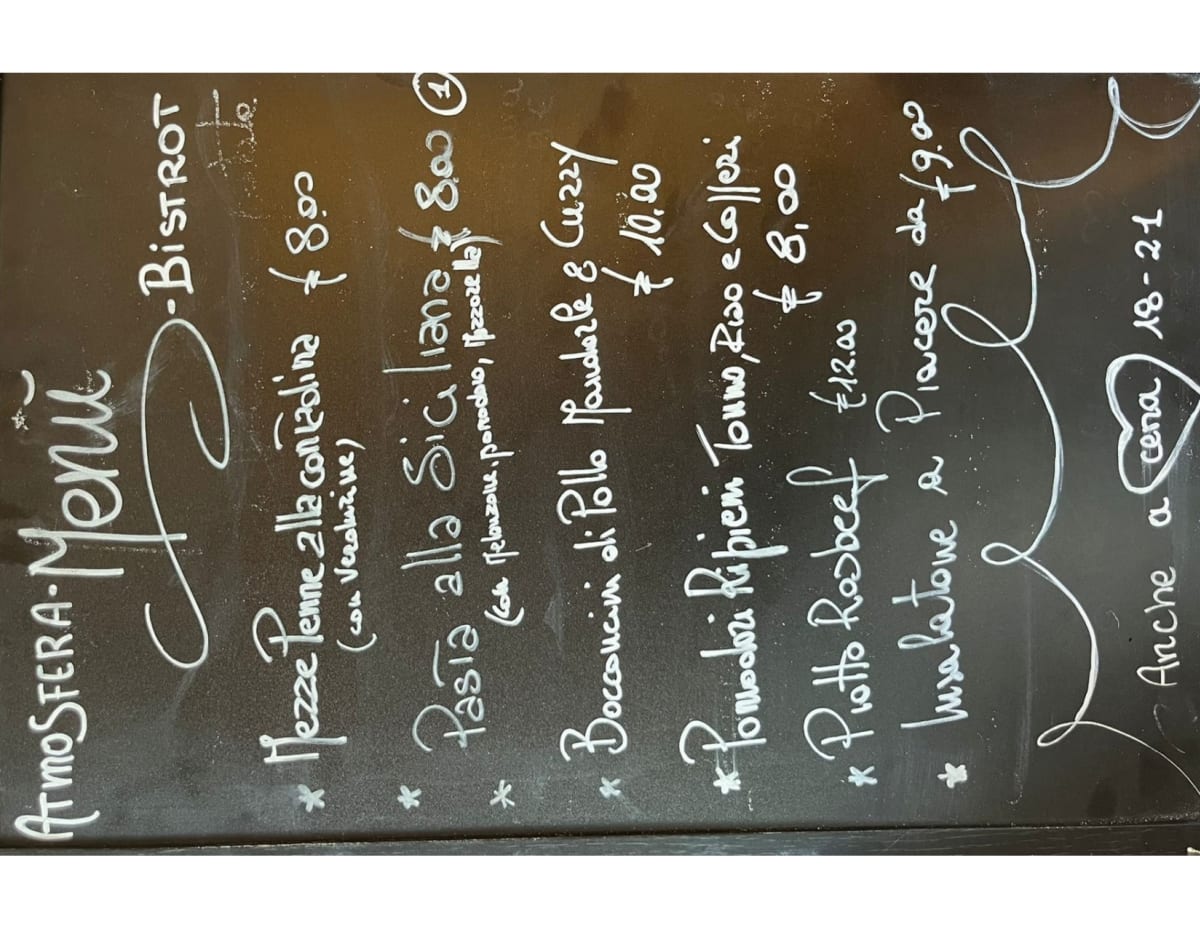 ATMOSFERA·Menù
·BISTROT
* Mezze Penne alla contadina € 8.00
(con verdurine)
* Pasta alla Siciliana € 8.00 1
* (con Melanzane, pomodoro, Mozzarella)
* Bocconcini di Pollo Mandorle & Cuzzy
€ 10.00
* Pomodori Ripieni Tonno, Riso e Capperi
€ 8.00
* Piatto Rosbeef €12.00
* Insalatone a Piacere da € 9.00
Anche a cena 18-21